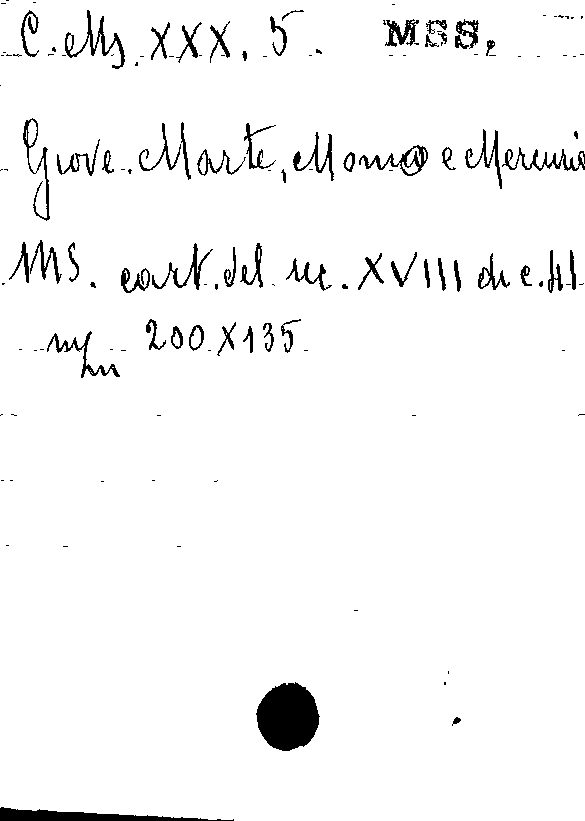 C. Ms. XXX. 5. MSS.
Giove. Marte, Momo e Mercurio
MS. cart. del sec. XVIII di c. 41
mm 200 X 135